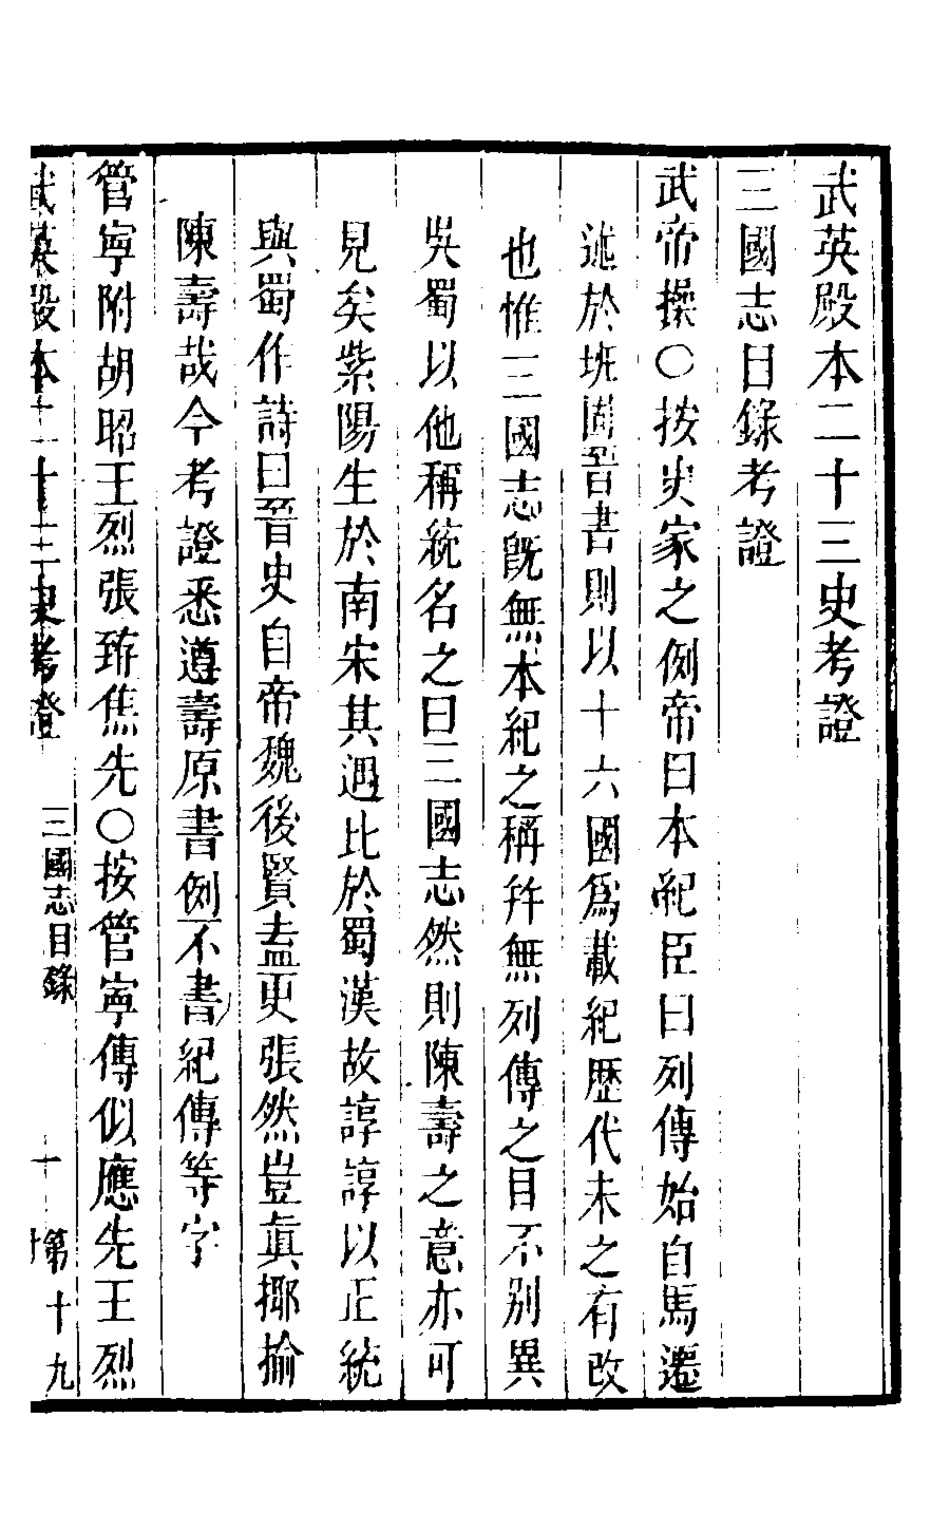 武英殿本二十三史考證
三國志目錄考證
武帝操〇按史家之例帝曰本紀臣曰列傳始自馬遷
述於班固晉書則以十六國爲載紀歷代未之有改
也惟三國志旣無本紀之稱幷無列傳之目不別異
吳蜀以他稱統名之曰三國志然則陳壽之意亦可
見矣紫陽生於南宋其遇比於蜀漢故諄諄以正統
與蜀作詩曰晉史自帝魏後賢盍更張然豈眞揶揄
陳壽哉今考證悉遵壽原書例不書紀傳等字
管寧附胡昭王烈張臶焦先〇按管寧傳似應先王烈
武英殿本二十三史考證
三國志目錄
一
第十九